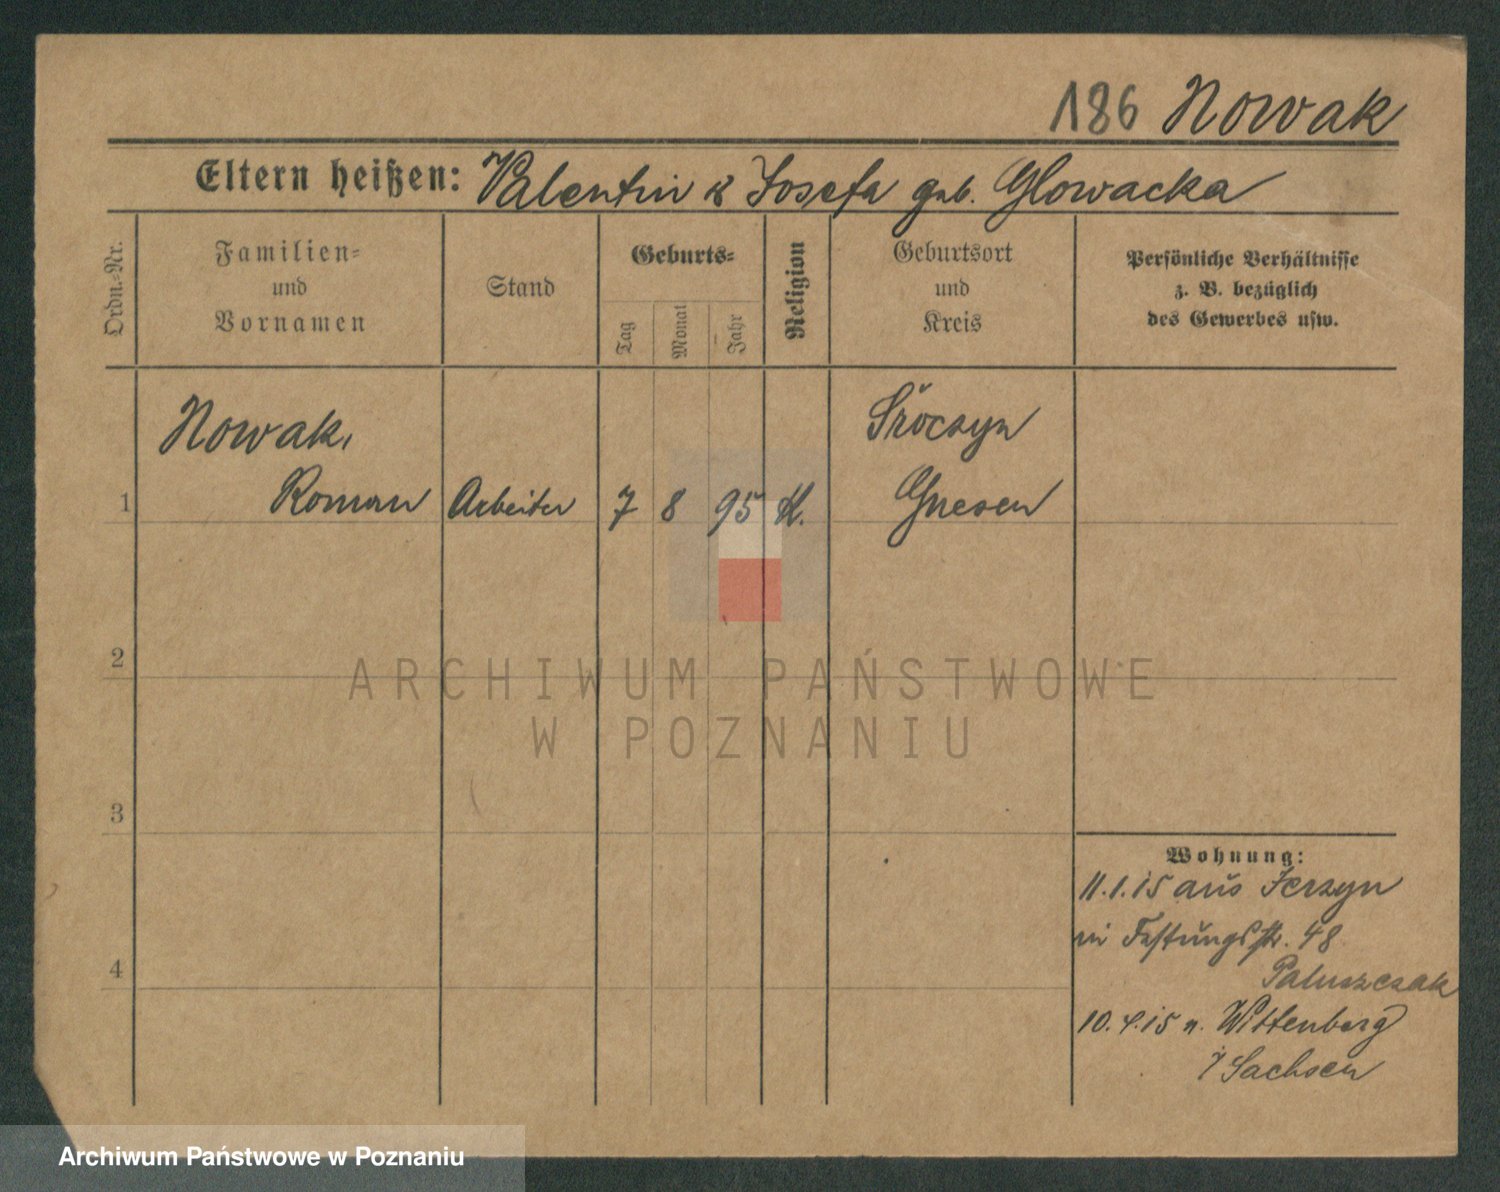 186 Nowak
Eltern heißen: Valentin & Josefa geb. Glowacka
Ordn.-Nr.
Familien-
und
Vornamen
Stand
Geburts-
Tag
Monat
Jahr
Religion
Geburtsort
und
Kreis
Persönliche Verhältnisse
z. B. bezüglich
des Gewerbes usw.
Nowak,
1 Roman Arbeiter 7 8 95 K.
Gnesen
2
3
4
ARCHIWUM PAŃSTWOWE
W POZNANIU
Wohnung:
11.1.15 aus Jerzyn
in Festungsstr. 48
Paluszczak
10.4.15 n. Wittenberg
i/Sachsen
Archiwum Państwowe w Poznaniu